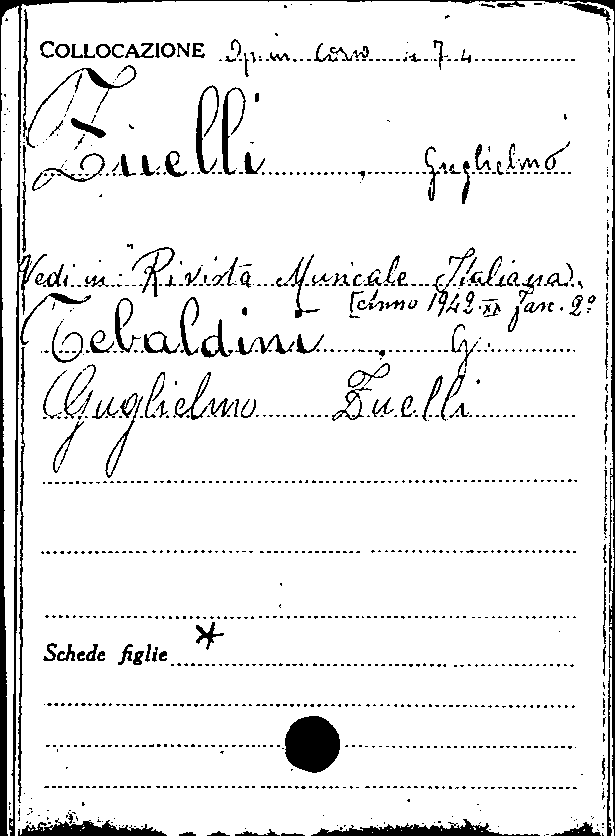 COLLOCAZIONE Op. in corso n 74
Zuelli, Guglielmo
Vedi in "Rivista Musicale Italiana".
[Anno 1942 XX Fasc. 2º
Tebaldini, G.
Guglielmo Zuelli
Schede figlie *